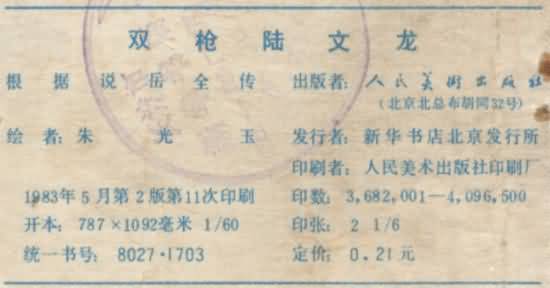 双枪陆文龙
根据说岳全传
绘者：朱光玉
1983年5月第2版第11次印刷
开本：787×1092毫米 1/60
统一书号：8027·1703
出版者：人民美术出版社
（北京北总布胡同32号）
发行者：新华书店北京发行所
印刷者：人民美术出版社印刷厂
印数：3,682,001—4,096,500
印张：2 1/6
定价：0.21元